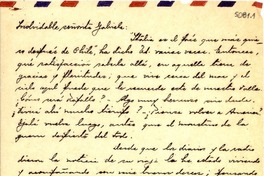 50811
Inolvidable, señorita Gabriela:
"Italia es el país que más quie-
ro después de Chile", ha dicho Ud varias veces. Entonces,
qué satisfacción saberla allá, en aquella tierra de
gracias y plenitudes, que vive cerca del mar y el
cielo azul puede que le recuerde el de nuestro valle.
¿Cómo irá Rapallo? ¿Algo muy hermoso sin duda.
¿Vivirá ahí mucho tiempo? ¿Piensa volver a América?
Ojalá vuelva luego, antes que el monstruo de la
guerra despierte del todo.
Desde que los diarios y la radio
dieron la noticia de su viaje la he estado viviendo
y acompañando en mis